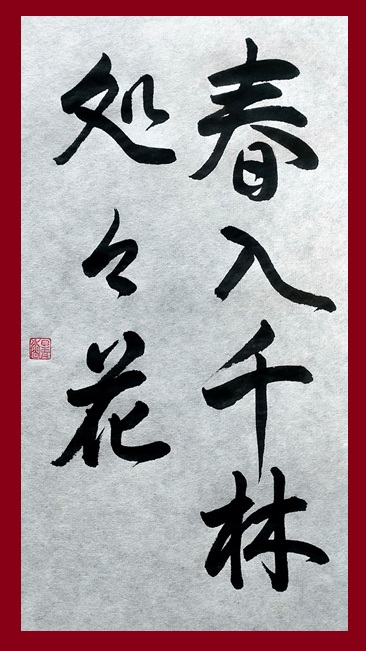 春入千林
処々花